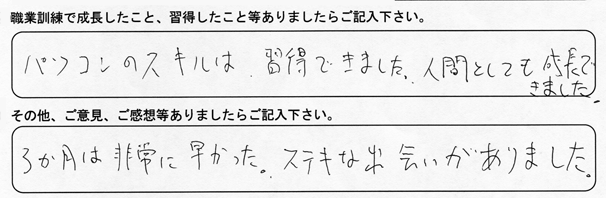 職業訓練で成長したこと、習得したこと等ありましたらご記入下さい。
パソコンのスキルは 習得できました。人間としても成長で
きました。
その他、ご意見、ご感想等ありましたらご記入下さい。
3か月は非常に早かった。ステキな出会いがありました。